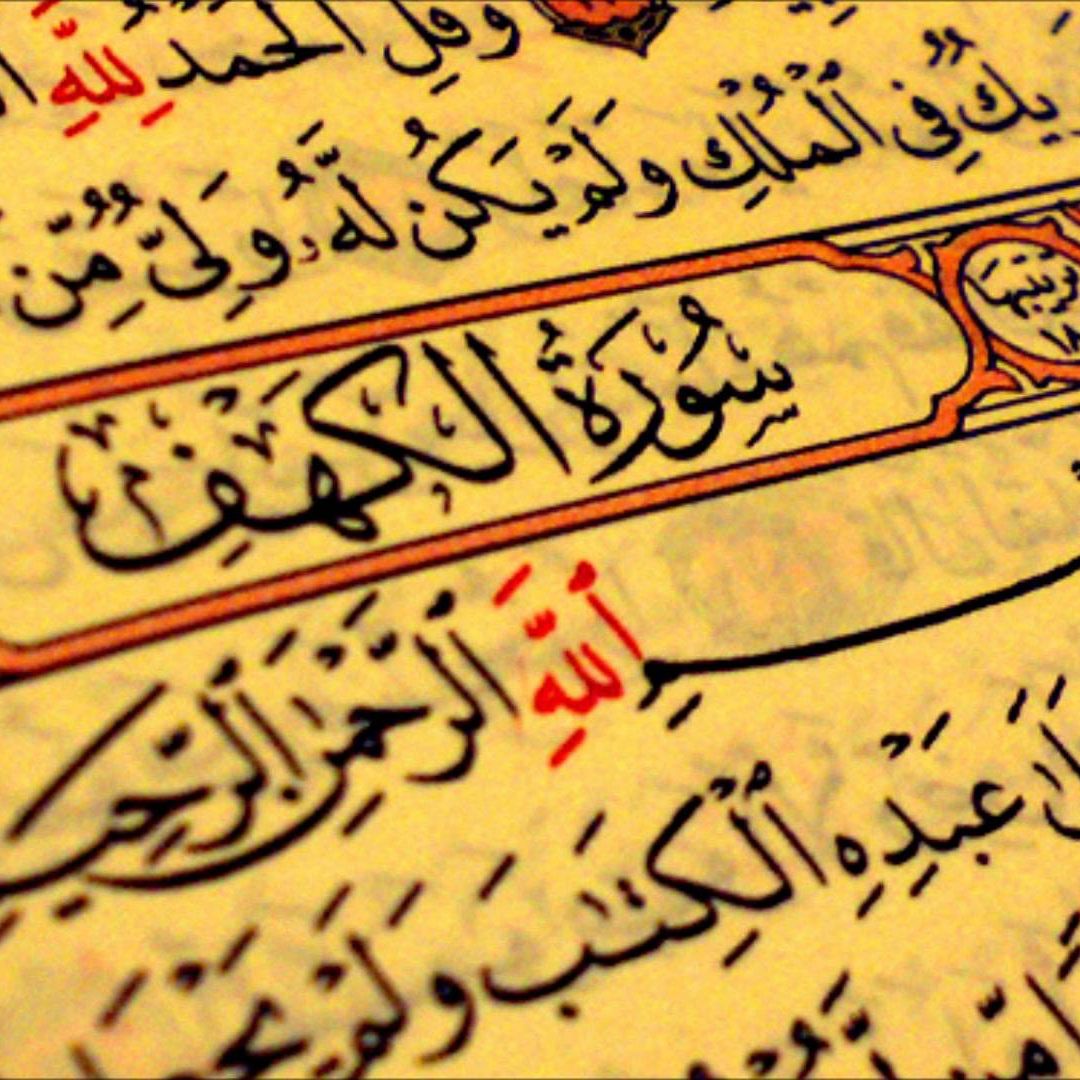 وَقُلِ ٱلْحَمْدُ لِلَّهِ
يكٌ فِى ٱلْمُلْكِ وَلَمْ يَكُن لَّهُۥ وَلِىٌّ مِّنَ
سُورَةُ الكَهْفِ
ترتيبها ١٨
ٱللَّهِ ٱلرَّحْمَٰنِ ٱلرَّحِي
عَبْدِهِ ٱلْكِتَٰبَ وَلَمْ يَجْعَل